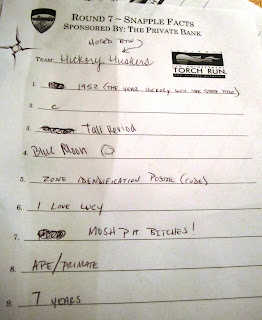 ROUND 7 ~ SNAPPLE FACTS
SPONSORED BY: THE PRIVATE BANK
HOSED BTW
TEAM: Hickory Huskers
TORCH RUN
1. 1952 (THE YEAR HICKORY WON THE STATE TITLE)
2. C
3. Tall Period
4. Blue Moon
5. ZONE IDENDIFICATION POSTAL (CODE)
6. I LOVE LUCY
7. MOSH PIT BITCHES!
8. APE/PRIMATE
9. 7 YEARS